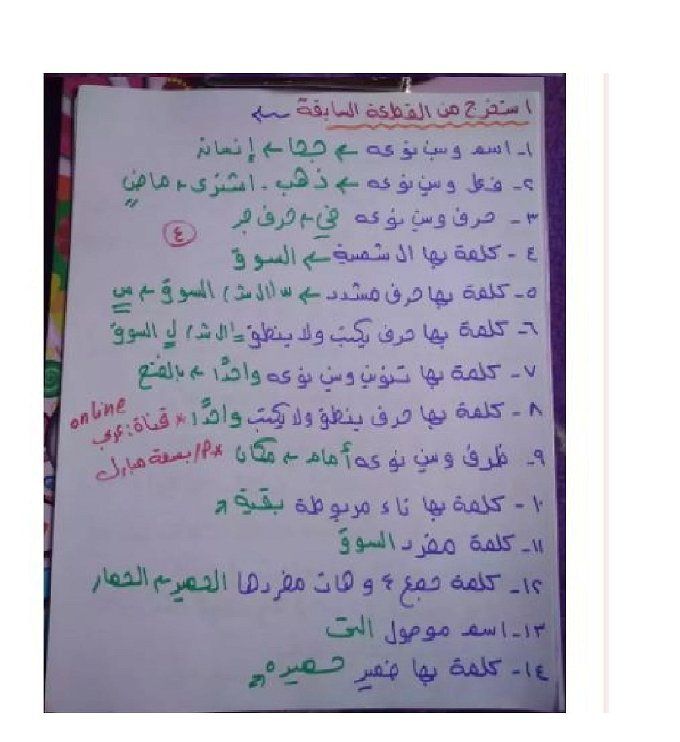 استخرج من القطعة السابقة
١- اسم وبين نوعه ← جحا ← إنسان
٢- فعل وبين نوعه ← ذهب - اشترى ← ماضٍ
٣- حرف وبين نوعه في ← حرف جر
٤
٤- كلمة بها ال شمسية ← السوق
٥- كلمة بها حرف مشدد ← السوق ← س
٦- كلمة بها حرف يكتب ولا ينطق ل السوق
٧- كلمة بها تنوين وبين نوعه واحدًا ← بالفتح
٨- كلمة بها حرف ينطق ولا يكتب واحدًا
online
* قناة: عربي
٩- ظرف وبين نوعه أمام ← مكان
بسمة مبارك
١٠- كلمة بها تاء مربوطة بقية
١١- كلمة مفرد السوق
١٢- كلمة جمع وهات مفردها الحمير ← الحمار
١٣- اسم موصول التى
١٤- كلمة بها ضمير حميره